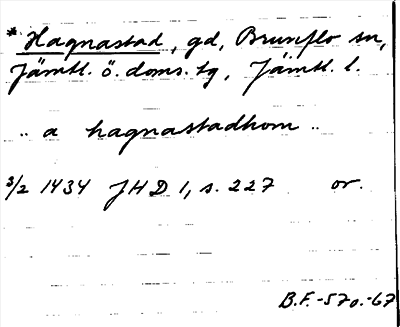 * Hagnastad, gd, Brunflo sn,
Jämtl. ö. doms. tg, Jämtl. l.
.. a hagnastadhom ..
3/2 1434 JHD 1, s. 227 or.
B.F.-570.-67